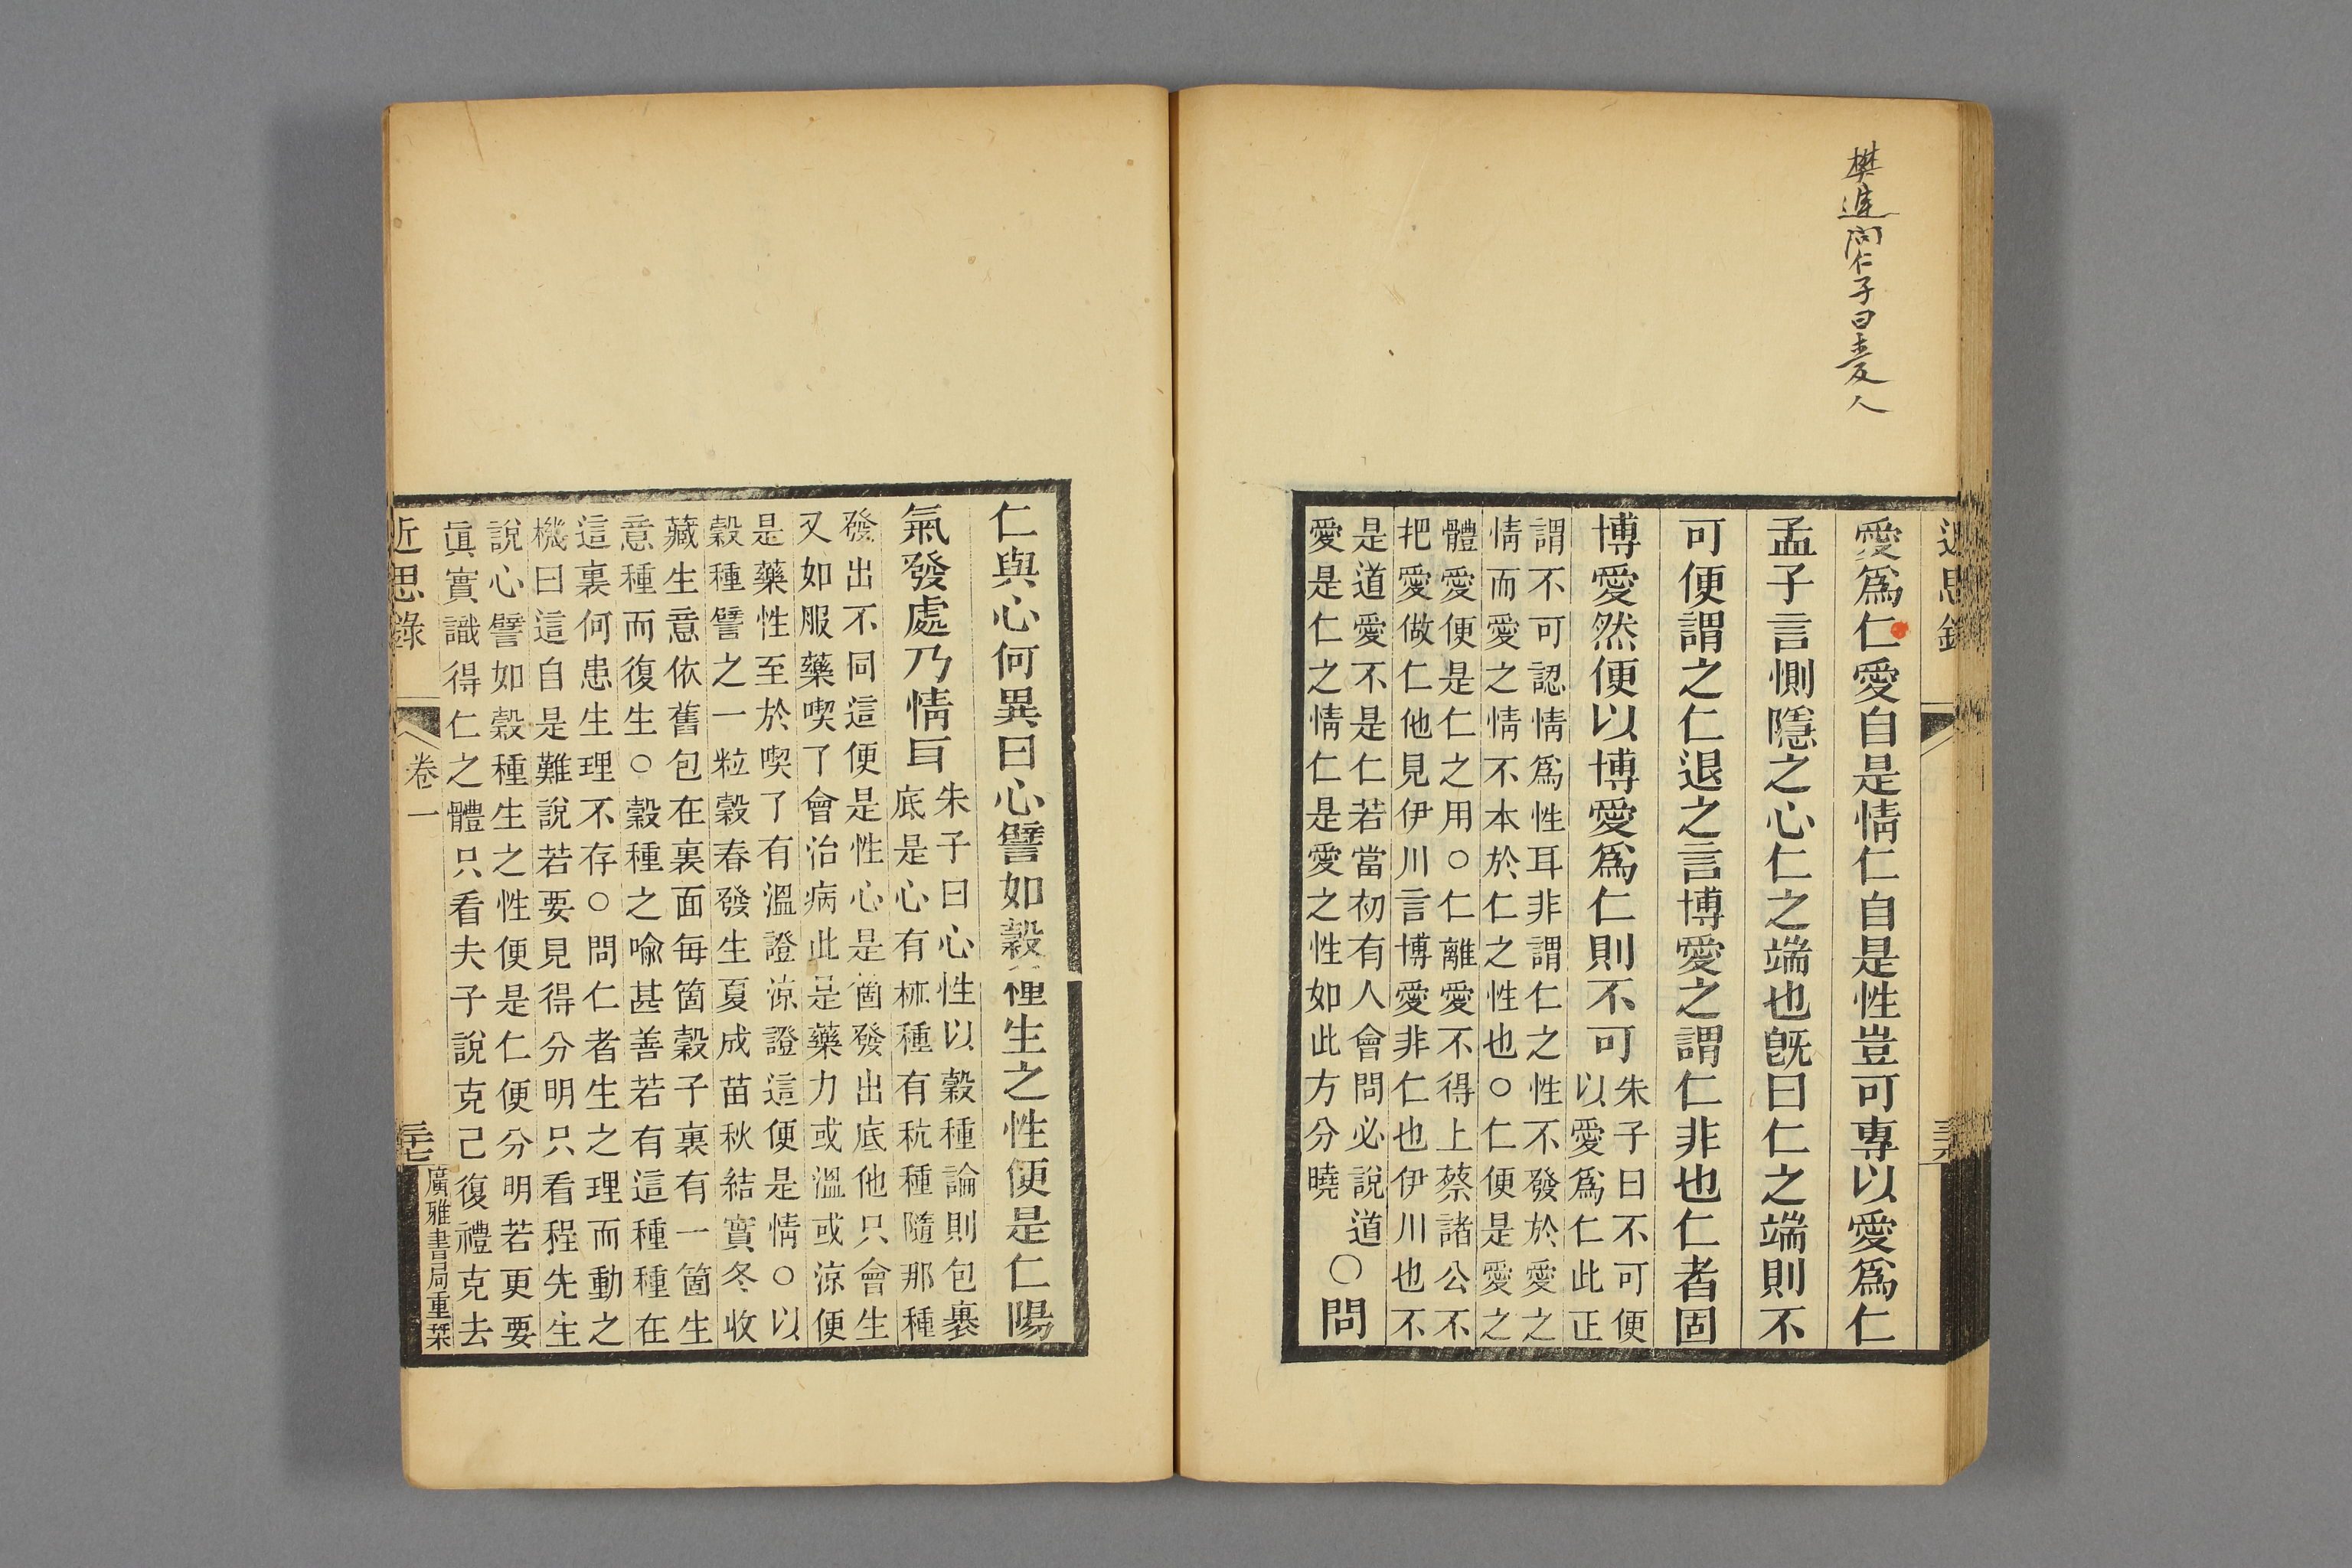 樊遲問仁子曰愛人
近思錄
愛爲仁愛自是情仁自是性豈可專以愛爲仁
孟子言惻隱之心仁之端也旣曰仁之端則不
可便謂之仁退之言博愛之謂仁非也仁者固
博愛然便以博愛爲仁則不可
朱子曰不可便
以愛爲仁此正
謂不可認情爲性耳非謂仁之性不發於愛之
情而愛之情不本於仁之性也○仁便是愛之
體愛便是仁之用○仁離愛不得上蔡諸公不
把愛做仁他見伊川言博愛非仁也伊川也不
是道愛不是仁若當初有人會問必說道
愛是仁之情仁是愛之性如此方分曉
○問
仁與心何異曰心譬如穀種生之性便是仁陽
氣發處乃情耳
朱子曰心性以穀種論則包裹
底是心有秫種有秔種隨那種
發出不同這便是性心是箇發出底他只會生
又如服藥喫了會治病此是藥力或溫或涼便
是藥性至於喫了有溫證涼證這便是情○以
穀種譬之一粒穀春發生夏成苗秋結實冬收
藏生意依舊包在裏面每箇穀子裏有一箇生
意種而復生○穀種之喩甚善若有這種種在
這裏何患生理不存○問仁者生之理而動之
機曰這自是難說若要見得分明只看程先生
說心譬如穀種生之性便是仁便分明若更要
眞實識得仁之體只看夫子說克己復禮克去
近思錄
卷一
三十七
廣雅書局重栞